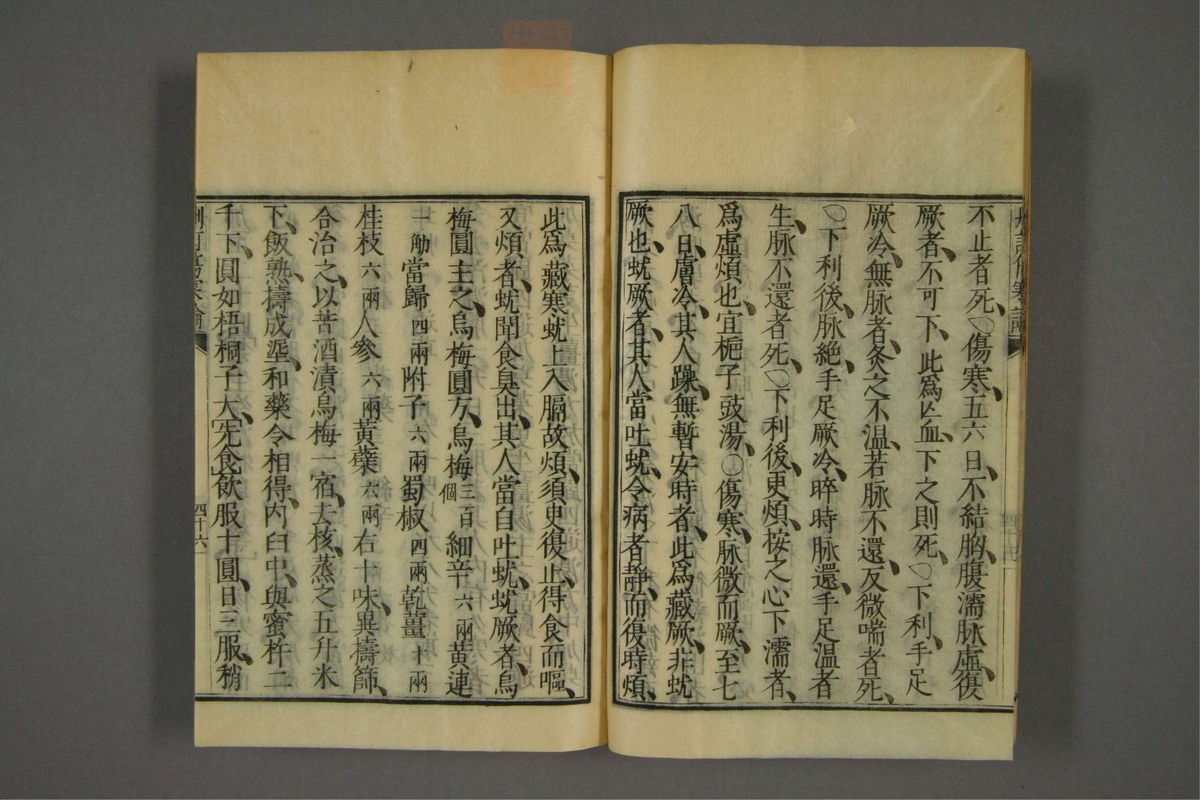 不止者死○傷寒五六日不結胸腹濡脉虛復
厥者不可下此爲亾血下之則死○下利手足
厥冷無脉者灸之不溫若脉不還反微喘者死
○下利後脉絶手足厥冷晬時脉還手足溫者
生脉不還者死○下利後更煩按之心下濡者
爲虛煩也宜梔子豉湯○傷寒脉微而厥至七
八日膚冷其人躁無暫安時者此爲藏厥非蚘
厥也蚘厥者其人當吐蚘令病者靜而復時煩
此爲藏寒蚘上入膈故煩須臾復止得食而嘔
又煩者蚘聞食臭出其人當自吐蚘蚘厥者烏
梅圓主之烏梅圓方烏梅三百個細辛六兩黄連
一觔當歸四兩附子六兩蜀椒四兩乾薑十兩
桂枝六兩人參六兩黄蘗六兩右十味異擣篩
合治之以苦酒漬烏梅一宿去核蒸之五升米
下飯熟擣成埿和藥令相得内臼中與蜜杵二
千下圓如梧桐子大先食飲服十圓日三服稍
四十六